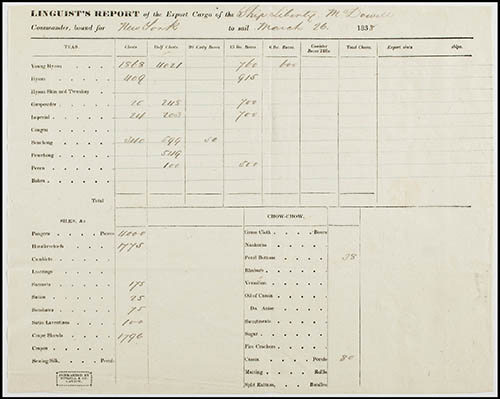 LINGUIST'S REPORT of the Export Cargo of the Ship Liberty McDowell
Commander, bound for New York to sail March 26 1833
TEAS. Chests Half Chests 13 lb. Boxes. 6 lb. Boxes. Canister Total Chests. Export stores ships.
Young Hyson 1868 4021 760 600
Hyson 409 915
Hyson Skin and Twankay
Gunpowder 20 245 700
Imperial 24 203 700
Congou
Souchong 340 699 50
Pouchong 549
Pecco 100 500
Bohea
Total
SILKS, &c. CHOW-CHOW.
Pongees Pieces 4000 Grass Cloth Boxes
Handkerchiefs 1775 Nankeens
Camblets Pearl Buttons 28
Lustrings Rhubarb
Sarsnets 175 Vermilion
Satins 25 Oil of Cassia
75 Do. Anise
Satin Levantines 100 Sweetmeats
Crape Shawls 1796 Sugar
Crapes Fire Crackers
Sewing Silk, Peculs Cassia Peculs 80
Matting Rolls
Split Rattans, Bundles